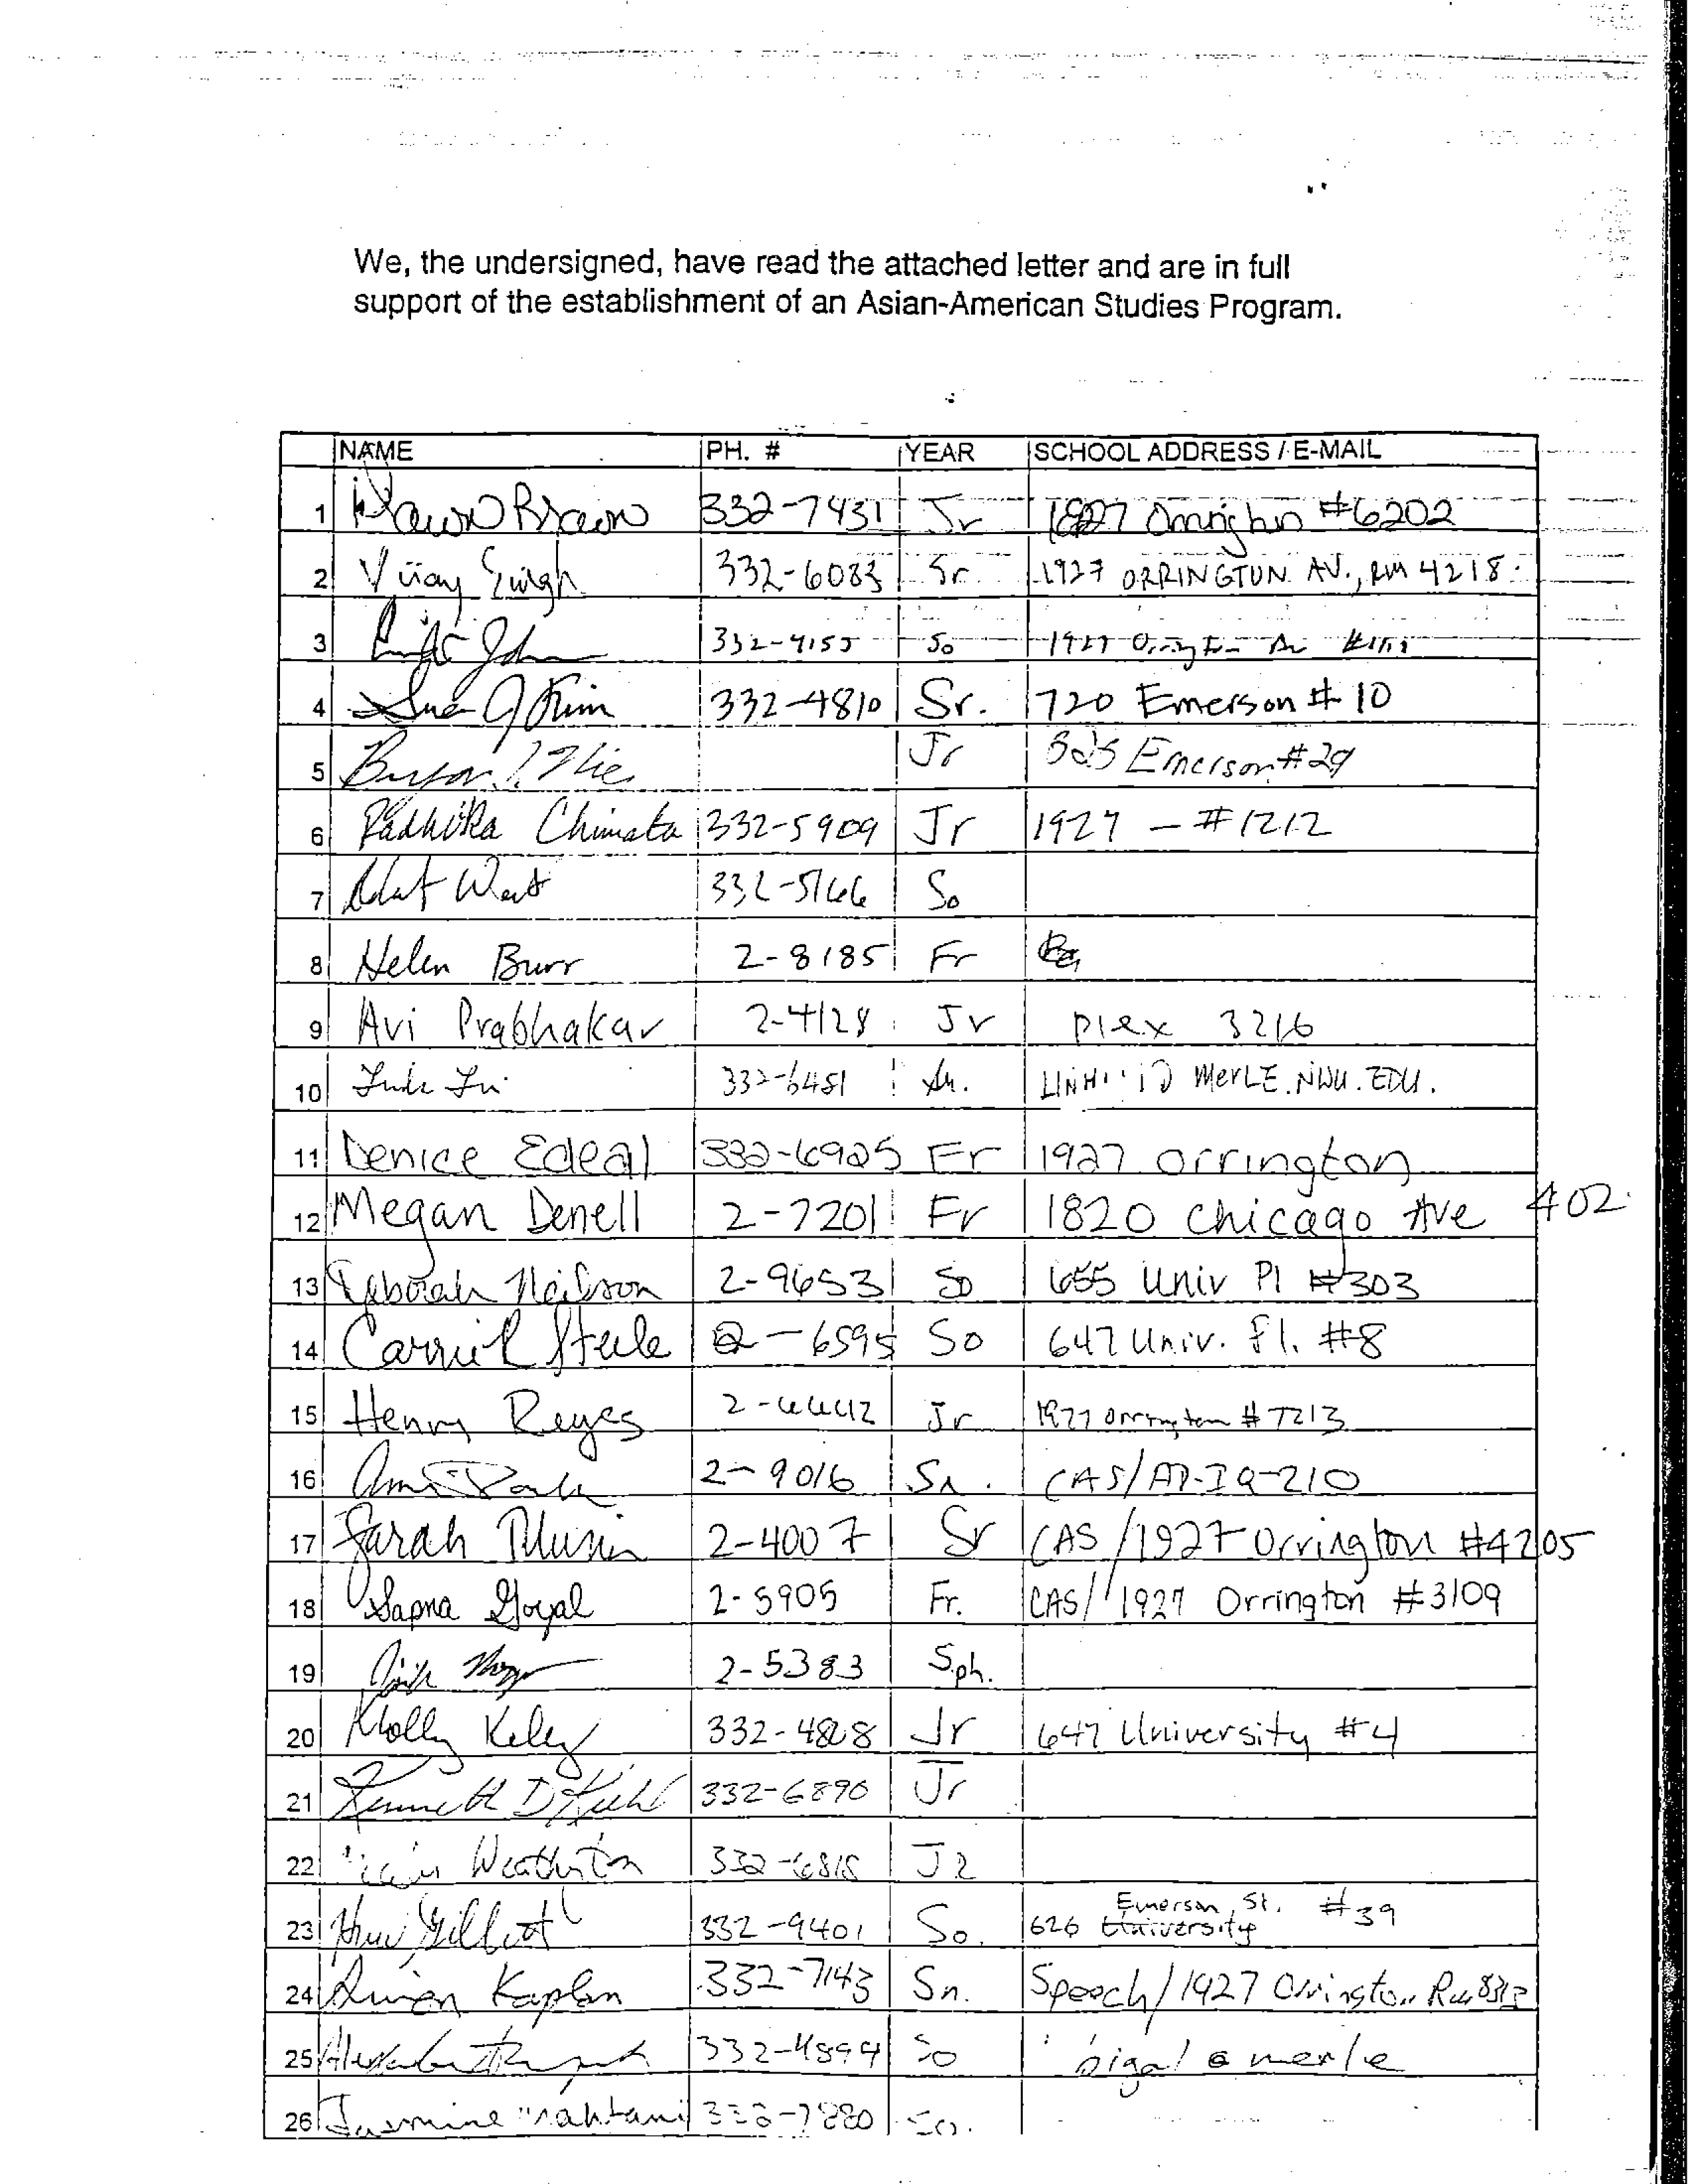 We, the undersigned, have read the attached letter and are in full
support of the establishment of an Asian-American Studies Program.
NAME PH. # YEAR SCHOOL ADDRESS / E-MAIL
1 Brown 332-7431 Jr 1927 #6202
2 Vijay Singh 332-6083 Sr. 1927 ORRINGTON AV., RM 4218
3 So 1927
4 Sue J Kim 332-4810 Sr. 720 Emerson # 10
5 Jr Emerson #29
6 Radhika Chimata 332-5909 Jr 1927 - #1212
7 West 332-5166 So
8 Helen Burr 2-8185 Fr
9 Avi Prabhakar 2-4128 Jr plex 3216
10 332-6451 MERLE.NWU.EDU.
11 Denice Edeal 332-6925 Fr 1927 orrington
12 Megan Denell 2-7201 Fr 1820 Chicago Ave 402
13 Deborah Neilson 2-9653 So 655 Univ Pl #303
14 Steele 2-6595 So 647 Univ. Pl. #8
15 Henry Reyes Jr 1927 Orrington # 7213
16 2-9016 Sr.
17 Sarah 2-4007 Sr CAS/1927 Orrington #4205
18 Sapna Goyal 2-5905 Fr. CAS/1927 Orrington #3109
19 2-5383 Sph.
20 Molly Kelly 332-4828 Jr 647 University #4
21 Kenneth D 332-6890 Jr
22 332-6818 JR
23 Gilbert 332-9401 So. 626 Emerson St. #39
24 Kaplan 332-7143 Sn. Speech/1927 Orrington
25 332-4894 So bigal@merle
26 Jasmine So.